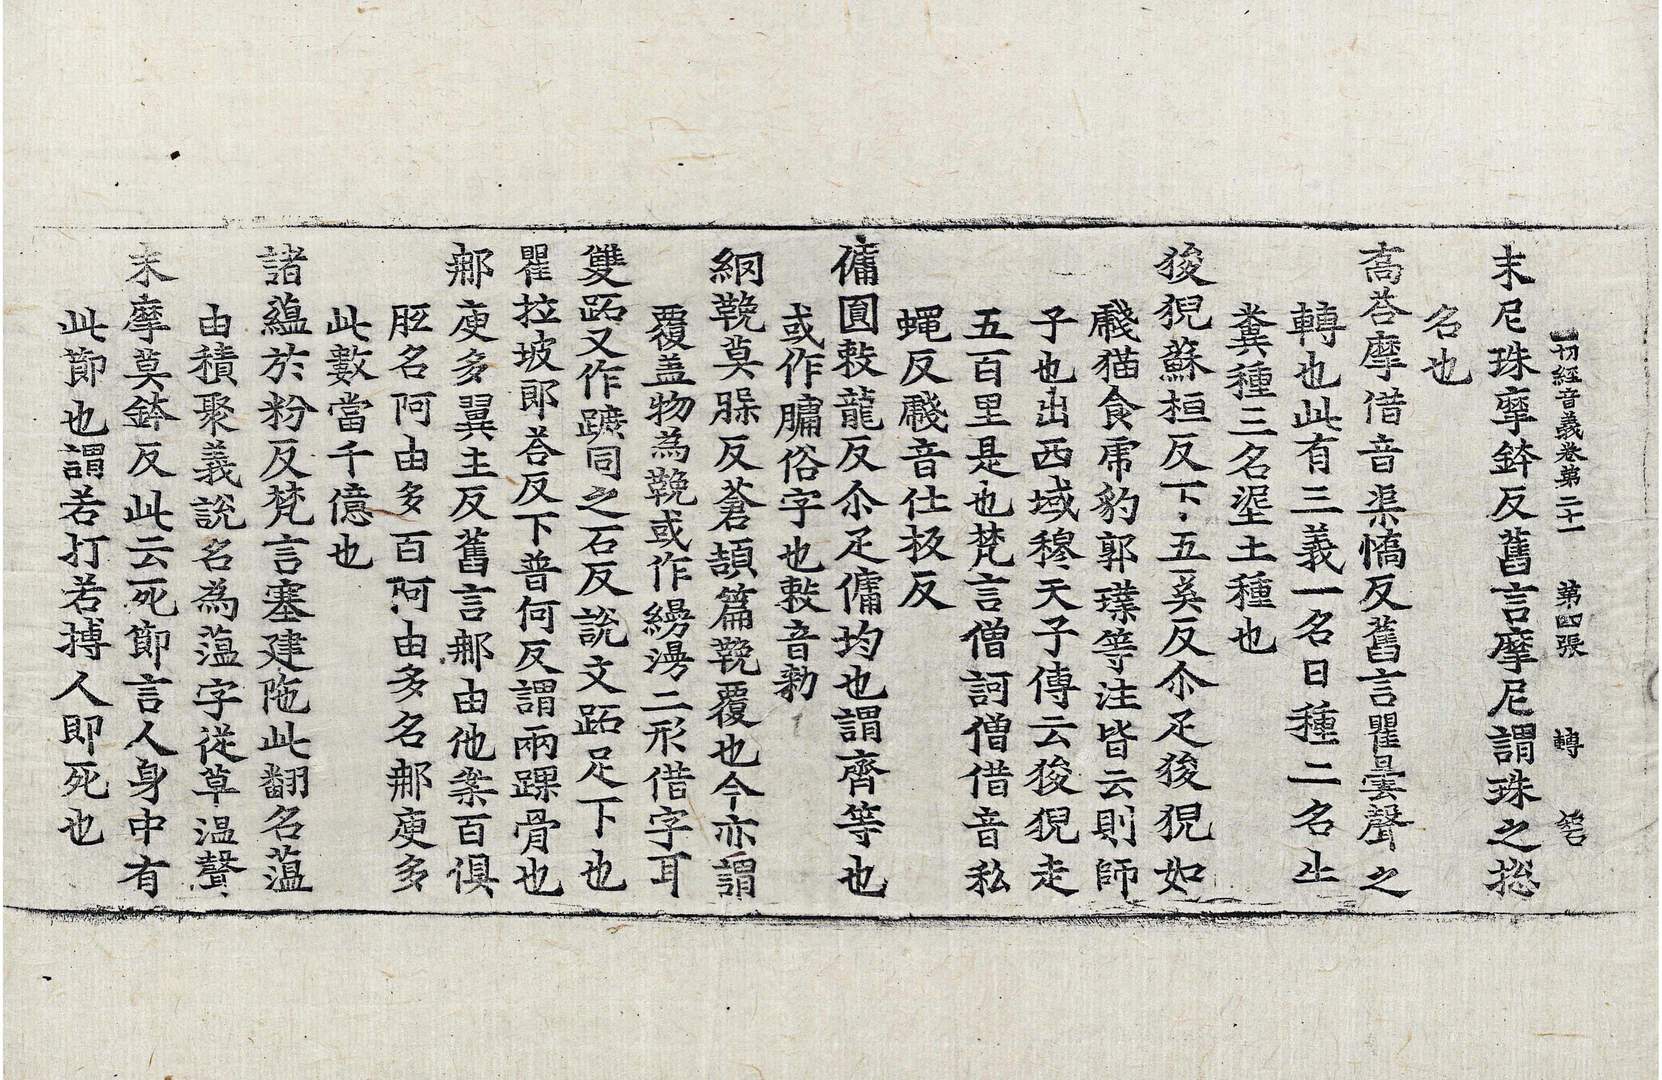 一切經音義卷第二十一 第四張 轉
末尼珠摩鉢反舊言摩尼謂珠之捴
名也
喬荅摩借音渠憍反舊言瞿曇聲之
轉也此有三義一名日種二名牛
糞種三名埿土種也
狻猊蘇桓反下五奚反尒疋狻猊如
虥猫食虎豹郭璞等注皆云則師
子也出西域穆天子傳云狻猊走
五百里是也梵言僧訶僧借音私
蠅反虥音仕板反
傭圓敕龍反尒疋傭均也謂齊等也
或作𦟛俗字也敕音勑
網鞔莫槃反蒼頡篇鞔覆也今亦謂
覆盖物為鞔或作縵漫二形借字耳
雙跖又作蹠同之石反說文跖足下也
瞿拉坡郎荅反下普何反謂兩踝骨也
那庾多翼主反舊言那由他案百俱
胝名阿由多百阿由多名那庾多
此數當千億也
諸蘊於粉反梵言塞建陁此翻名蕰
由積聚義說名為蕰字從草温聲
末摩莫鉢反此云死節言人身中有
此節也謂若打若搏人即死也